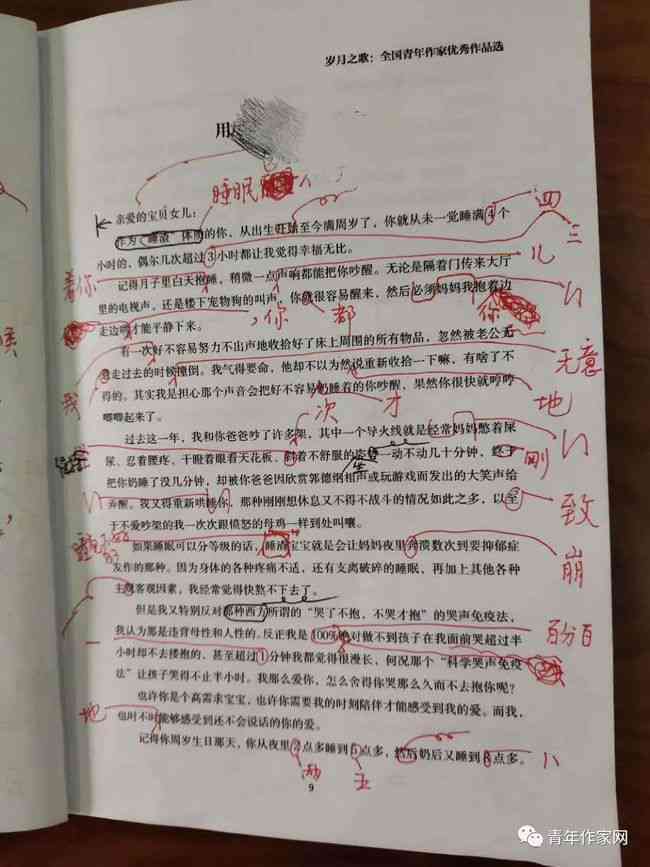 岁月之歌：全国青年作家优秀作品选
用
睡眠
亲爱的宝贝女儿：
作为“睡渣”体质的你，从出生开始至今满周岁了，你就从未一觉睡满4个 四
小时的，偶尔几次超过3小时都让我觉得幸福无比。 三
着你 记得月子里白天抱睡，稍微一点声响都能把你吵醒。无论是隔着门传来大厅 儿
里的电视声，还是楼下宠物狗的叫声，你就很容易醒来，然后必须妈妈我抱着边
，你 都 你
走边哄才能平静下来。
有一次好不容易努力不出声地收拾好了床上周围的所有物品，忽然被老公无 无意
意走过去的时候撞倒。我气得要命，他却不以为然说重新收拾一下嘛，有啥了不
我 得的。其实我是担心那个声音会把好不容易奶睡着的你吵醒，果然你很快就哼哼 地
唧唧起来了。 次 才
过去这一年，我和你爸爸吵了许多架，其中一个导火线就是经常妈妈憋着尿
尿、忍着腰疼、干瞪着眼看天花板、斜着不舒服的姿势一动不动几十分钟，终于 刚
把你奶睡了没几分钟，却被你爸爸因欣赏郭德纲相声或玩游戏而发出的大笑声给
弄醒。我又得重新哄睡你，那种刚刚想休息又不得不战斗的情况如此之多，以至 致
于不爱吵架的我一次次跟愤怒的母鸡一样到处叫嚷。
如果睡眠可以分等级的话，睡渣宝宝就是会让妈妈夜里奔溃数次到要抑郁症 崩
发作的那种。因为身体的各种疼痛不适，还有支离破碎的睡眠，再加上其他各种
主观客观因素，我经常觉得快熬不下去了。
但是我又特别反对那种西方所谓的“哭了不抱，不哭才抱”的哭声免疫法，
我认为那是违背母性和人性的。反正我是100%绝对做不到孩子在我面前哭超过半 百分百
一 小时却不去搂抱的，甚至超过1分钟我都觉得很漫长，何况那个“科学哭声免疫
法”让孩子哭得不止半小时。我那么爱你，怎么舍得你哭那么久而不去抱你呢？
也许你是个高需求宝宝，也许你需要我的时刻陪伴才能感受到我的爱。而我，
地 也时不时能够感受到还不会说话的你的爱。
记得你周岁生日那天，你从夜里2点多睡到5点多，然后奶后又睡到8点多。 八
两 五
9
青年作家网